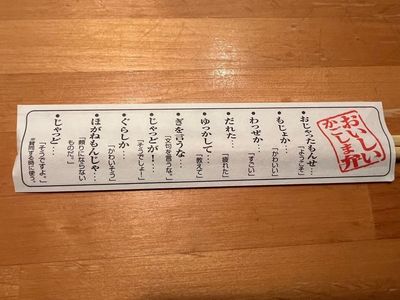 おいしい
かごしま弁
・おじゃったもんせ…
「ようこそ」
・もじょか…
「かわいい」
・わっぜか…
「すごい」
・だれた…
「疲れた」
・ゆっかして…
「教えて」
・ぎを言うな…
「文句を言うな。」
・じゃっどが!…
「そうでしょ!」
・ぐらしか…
「かわいそう」
・ほがねもんじゃ…
「頼りにならない
ものだ。」
・じゃっど…
「そうですよ。」
※賛同する時に使う。